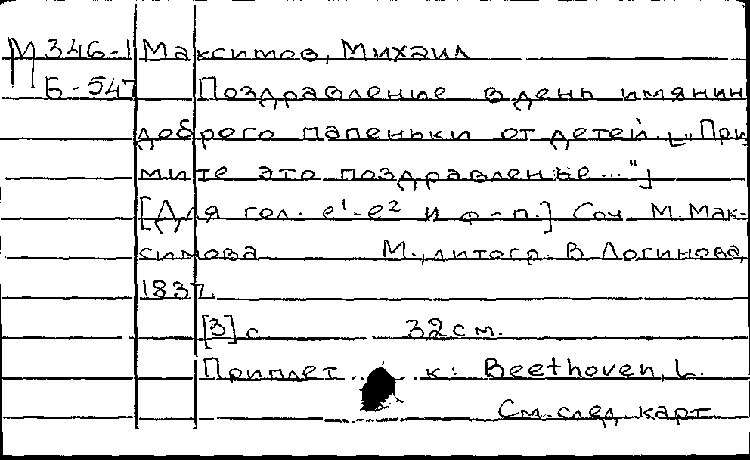 М 346-1 Максимов, Михаил
Б-547 Поздравление в день имянин
доброго папеньки от детей. [„При
мите это поздравленье..."]
[Для гол. e¹-e² и ф-п.] Соч. М. Мак-
симова М., литогр. В. Логинова,
1837.
[3] с 32 см.
Приплет. к: Beethoven, L.
См. след. карт